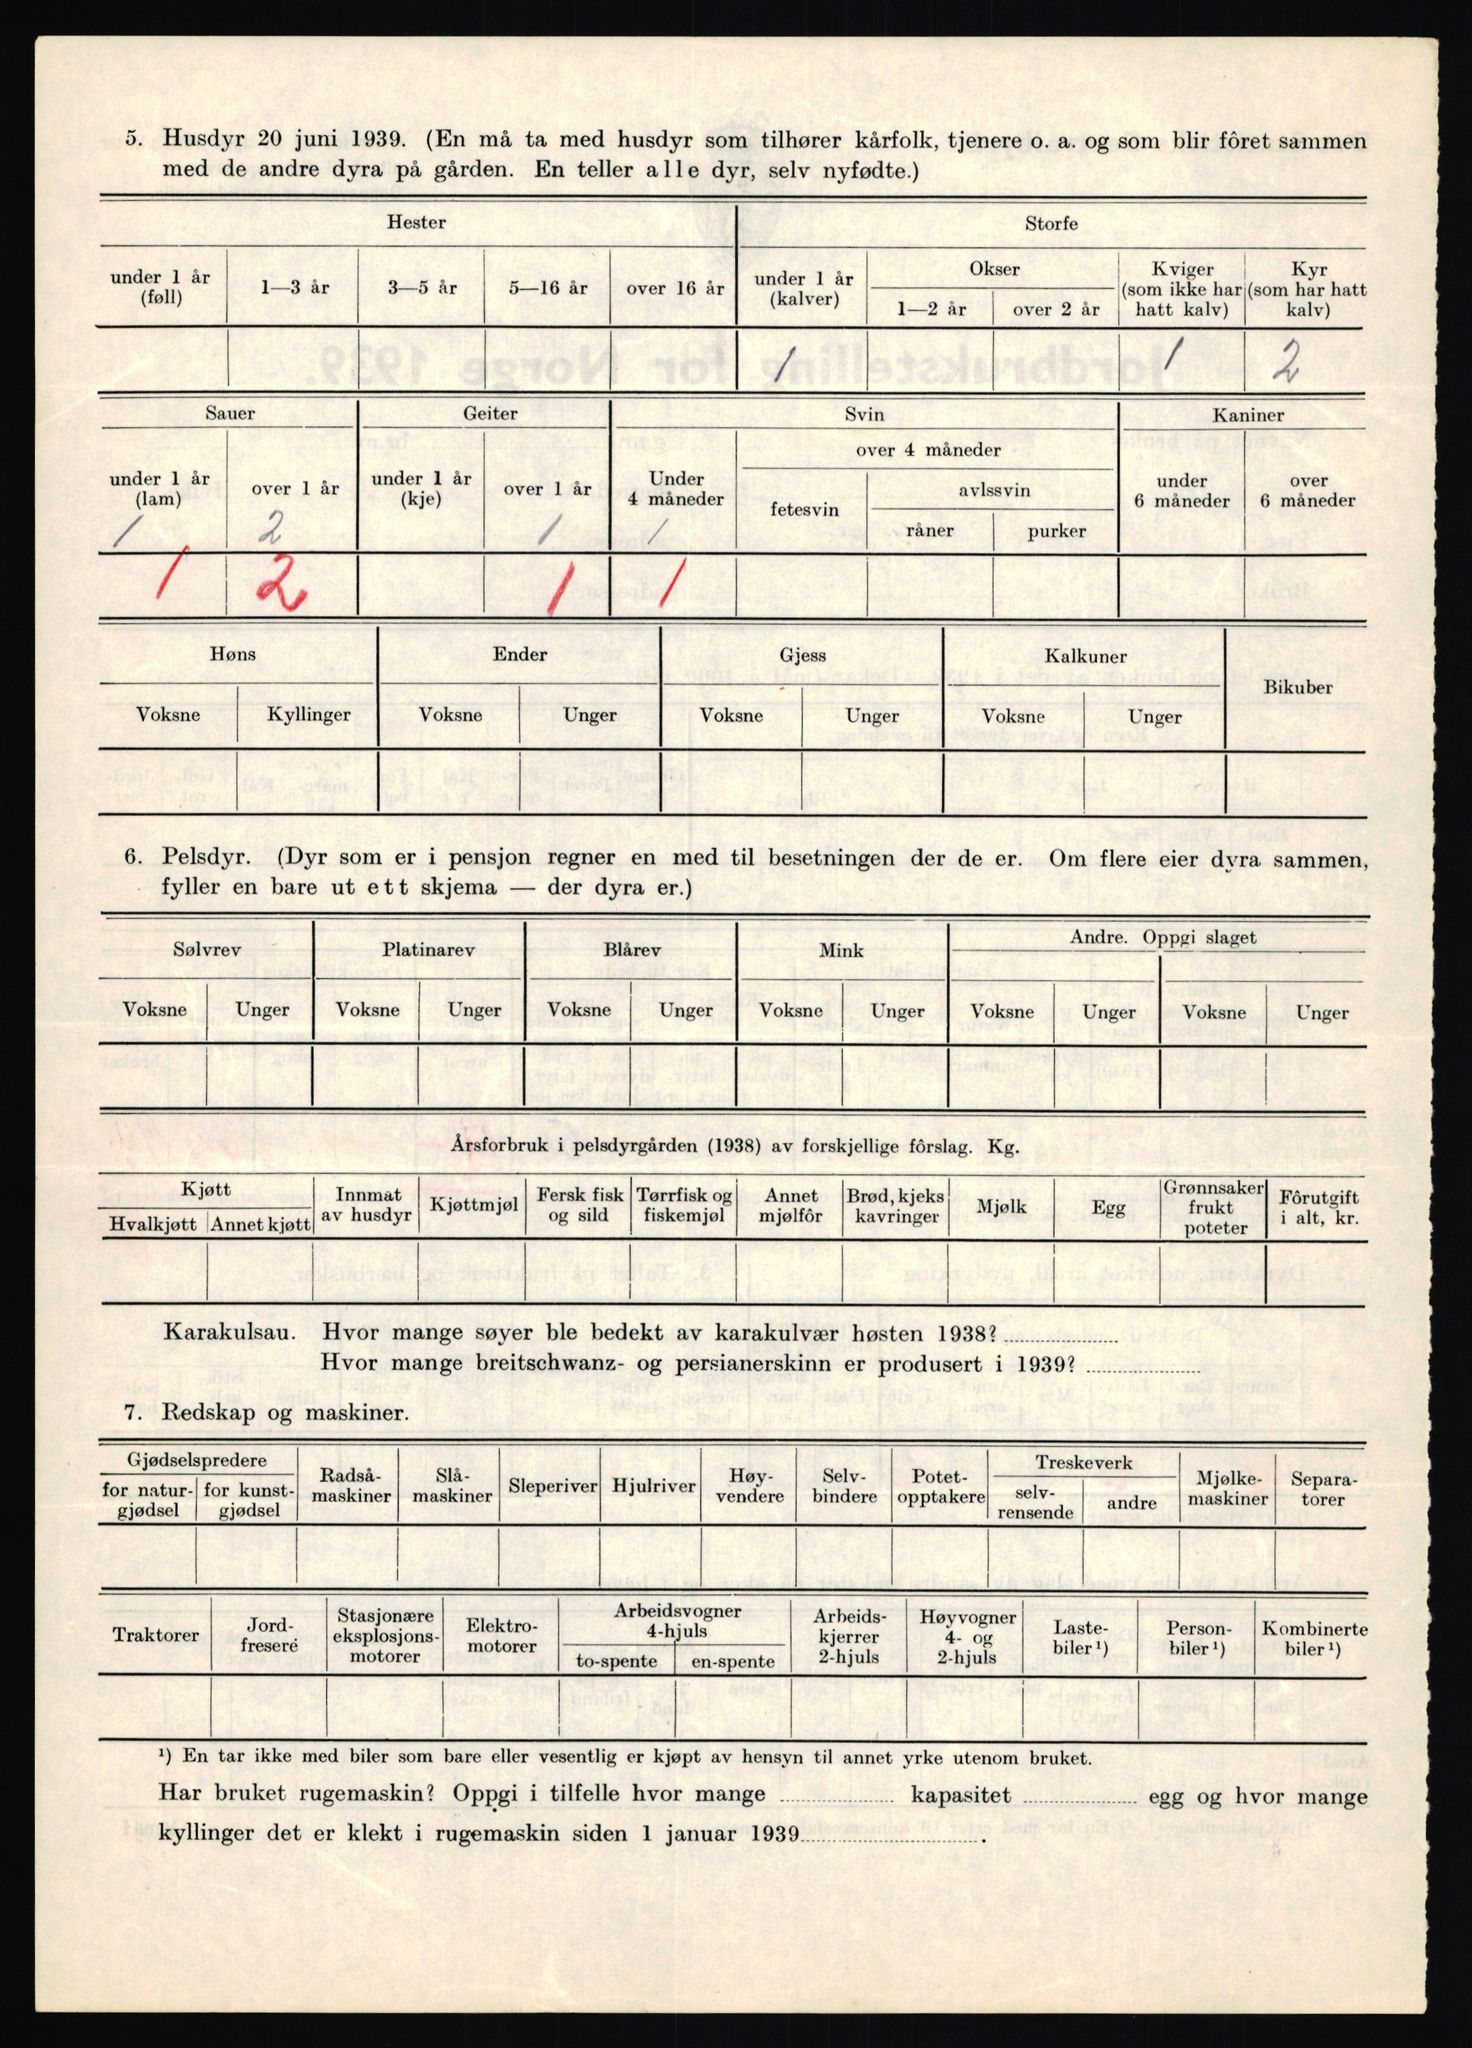 5. Husdyr 20 juni 1939. (En må ta med husdyr som tilhører kårfolk, tjenere o. a. og som blir fôret sammen
med de andre dyra på gården. En teller alle dyr, selv nyfødte.)
Hester Storfe
under 1 år (føll) 1—3 år 3—5 år 5—16 år over 16 år under 1 år (kalver) Okser 1—2 år over 2 år Kviger (som ikke har hatt kalv) Kyr (som har hatt kalv)
1 1 2
Sauer Geiter Svin Kaniner
under 1 år (lam) over 1 år under 1 år (kje) over 1 år Under 4 måneder over 4 måneder fetesvin avlssvin råner purker under 6 måneder over 6 måneder
1 2 1 1
1 2 1 1
Høns Ender Gjess Kalkuner Bikuber
Voksne Kyllinger Voksne Unger Voksne Unger Voksne Unger
6. Pelsdyr. (Dyr som er i pensjon regner en med til besetningen der de er. Om flere eier dyra sammen,
fyller en bare ut ett skjema — der dyra er.)
Sølvrev Platinarev Blårev Mink Andre. Oppgi slaget
Voksne Unger Voksne Unger Voksne Unger Voksne Unger Voksne Unger Voksne Unger
Årsforbruk i pelsdyrgården (1938) av forskjellige fôrslag. Kg.
Kjøtt Hvalkjøtt Annet kjøtt Innmat av husdyr Kjøttmjøl Fersk fisk og sild Tørrfisk og fiskemjøl Annet mjølfôr Brød, kjeks kavringer Mjølk Egg Grønnsaker frukt poteter Fôrutgift i alt, kr.
Karakulsau. Hvor mange søyer ble bedekt av karakulvær høsten 1938?
Hvor mange breitschwanz- og persianerskinn er produsert i 1939?
7. Redskap og maskiner.
Gjødselspredere for natur-gjødsel for kunst-gjødsel Radså-maskiner Slå-maskiner Sleperiver Hjulriver Høy-vendere Selv-bindere Potet-opptakere Treskeverk selv-rensende andre Mjølke-maskiner Separa-torer
Traktorer Jord-fresere Stasjonære eksplosjons-motorer Elektro-motorer Arbeidsvogner 4-hjuls to-spente en-spente Arbeids-kjerrer 2-hjuls Høyvogner 4- og 2-hjuls Laste-biler ¹) Person-biler ¹) Kombinerte biler ¹)
¹) En tar ikke med biler som bare eller vesentlig er kjøpt av hensyn til annet yrke utenom bruket.
Har bruket rugemaskin? Oppgi i tilfelle hvor mange kapasitet egg og hvor mange
kyllinger det er klekt i rugemaskin siden 1 januar 1939 .